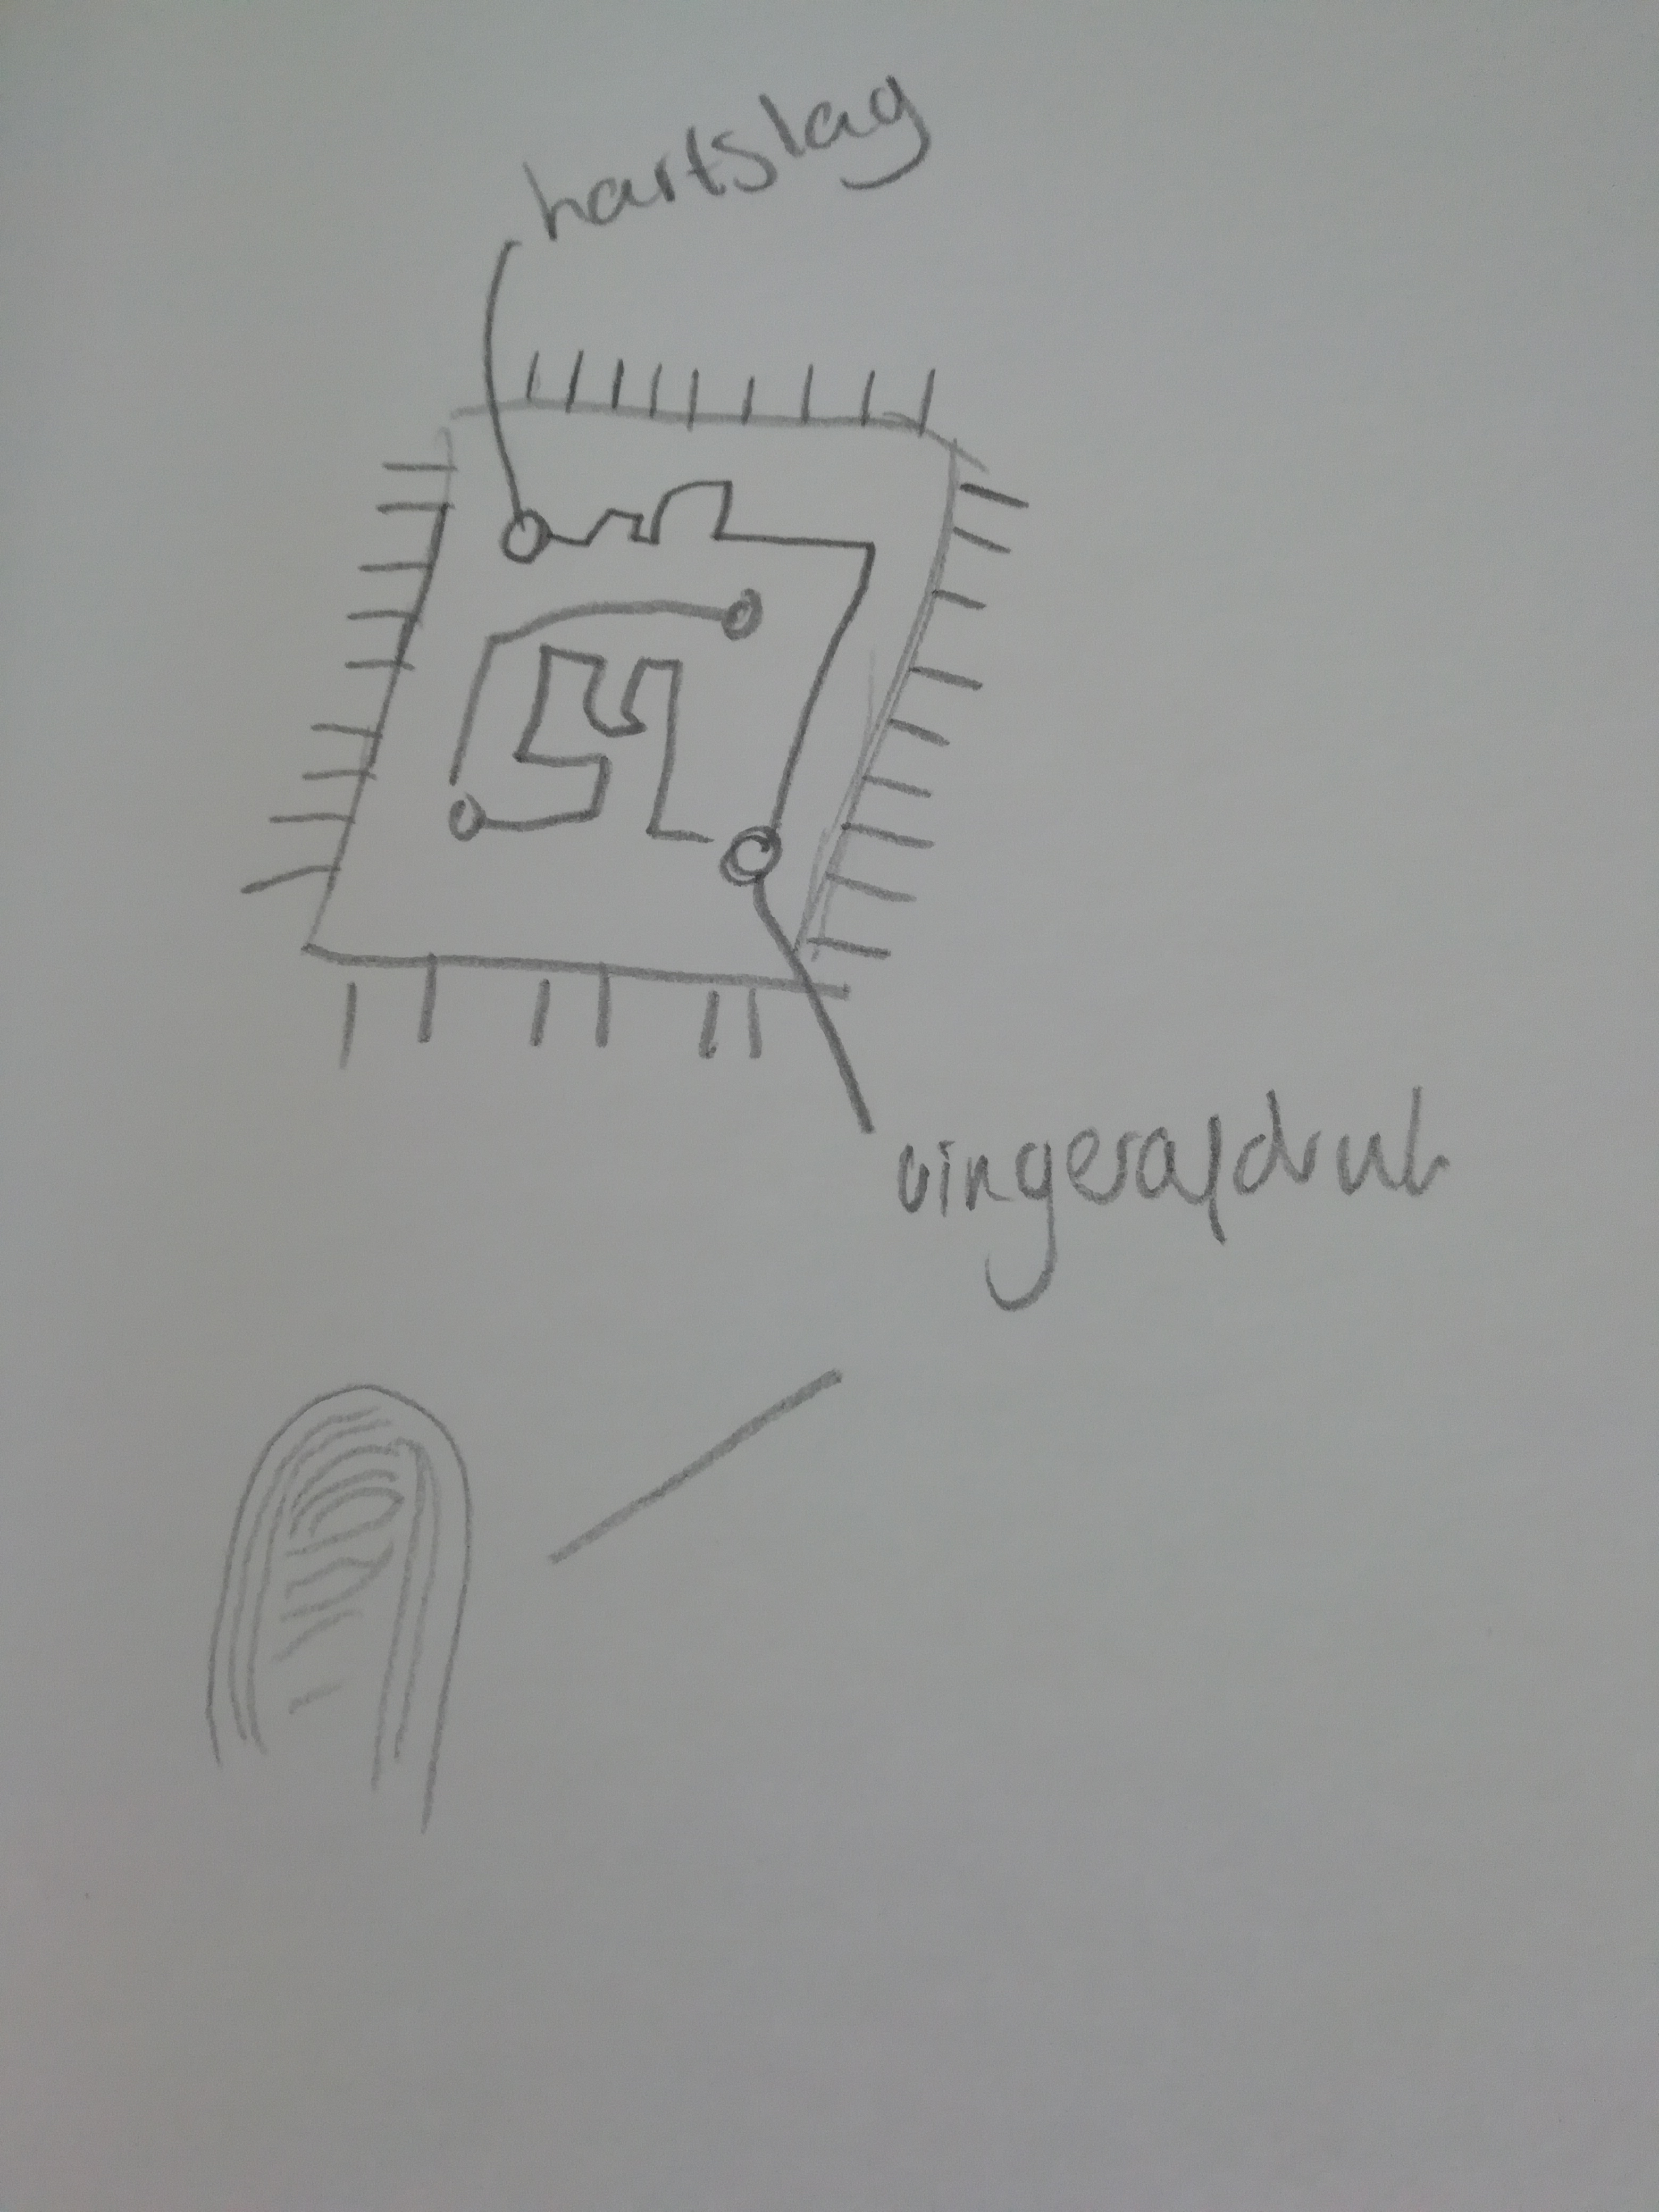 hartslag
vingerafdruk